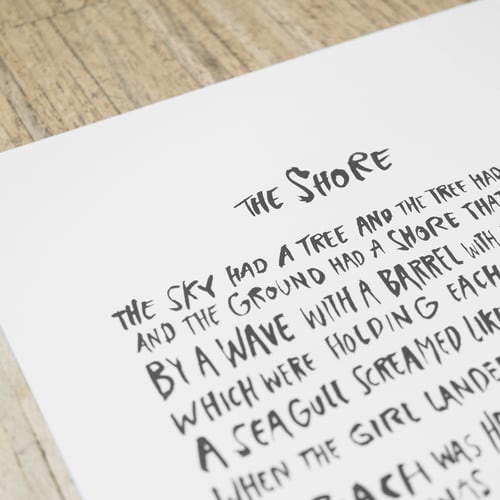 THE SHORE
THE SKY HAD A TREE AND THE TREE HAD
AND THE GROUND HAD A SHORE THAT
BY A WAVE WITH A BARREL WITH
WHICH WERE HOLDING EACH
A SEAGULL SCREAMED LIKE
WHEN THE GIRL LANDE
WAS